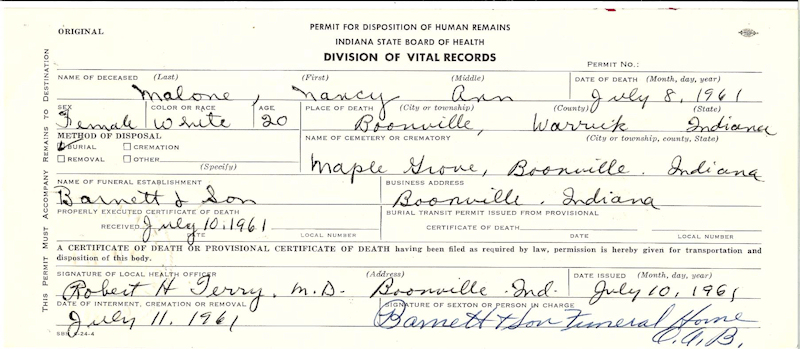 ORIGINAL
PERMIT FOR DISPOSITION OF HUMAN REMAINS
INDIANA STATE BOARD OF HEALTH
DIVISION OF VITAL RECORDS
PERMIT NO.:
THIS PERMIT MUST ACCOMPANY REMAINS TO DESTINATION
NAME OF DECEASED (Last) (First) (Middle) DATE OF DEATH (Month, day, year)
Malone, Nancy Ann July 8, 1961
SEX COLOR OR RACE AGE PLACE OF DEATH (City or township) (County) (State)
Female White 20 Boonville, Warrick Indiana
METHOD OF DISPOSAL NAME OF CEMETERY OR CREMATORY (City or township, county, State)
BURIAL CREMATION
REMOVAL OTHER (Specify)
Maple Grove, Boonville. Indiana
NAME OF FUNERAL ESTABLISHMENT BUSINESS ADDRESS
Barnett & Son Boonville. Indiana
PROPERLY EXECUTED CERTIFICATE OF DEATH BURIAL TRANSIT PERMIT ISSUED FROM PROVISIONAL
RECEIVED July 10, 1961 CERTIFICATE OF DEATH
DATE LOCAL NUMBER DATE LOCAL NUMBER
A CERTIFICATE OF DEATH OR PROVISIONAL CERTIFICATE OF DEATH having been filed as required by law, permission is hereby given for transportation and
disposition of this body.
SIGNATURE OF LOCAL HEALTH OFFICER (Address) DATE ISSUED (Month, day, year)
Robert H Terry, M.D. Boonville Ind. July 10, 1961
DATE OF INTERMENT, CREMATION OR REMOVAL SIGNATURE OF SEXTON OR PERSON IN CHARGE
July 11, 1961 Barnett & Son Funeral Home
C.A.B.